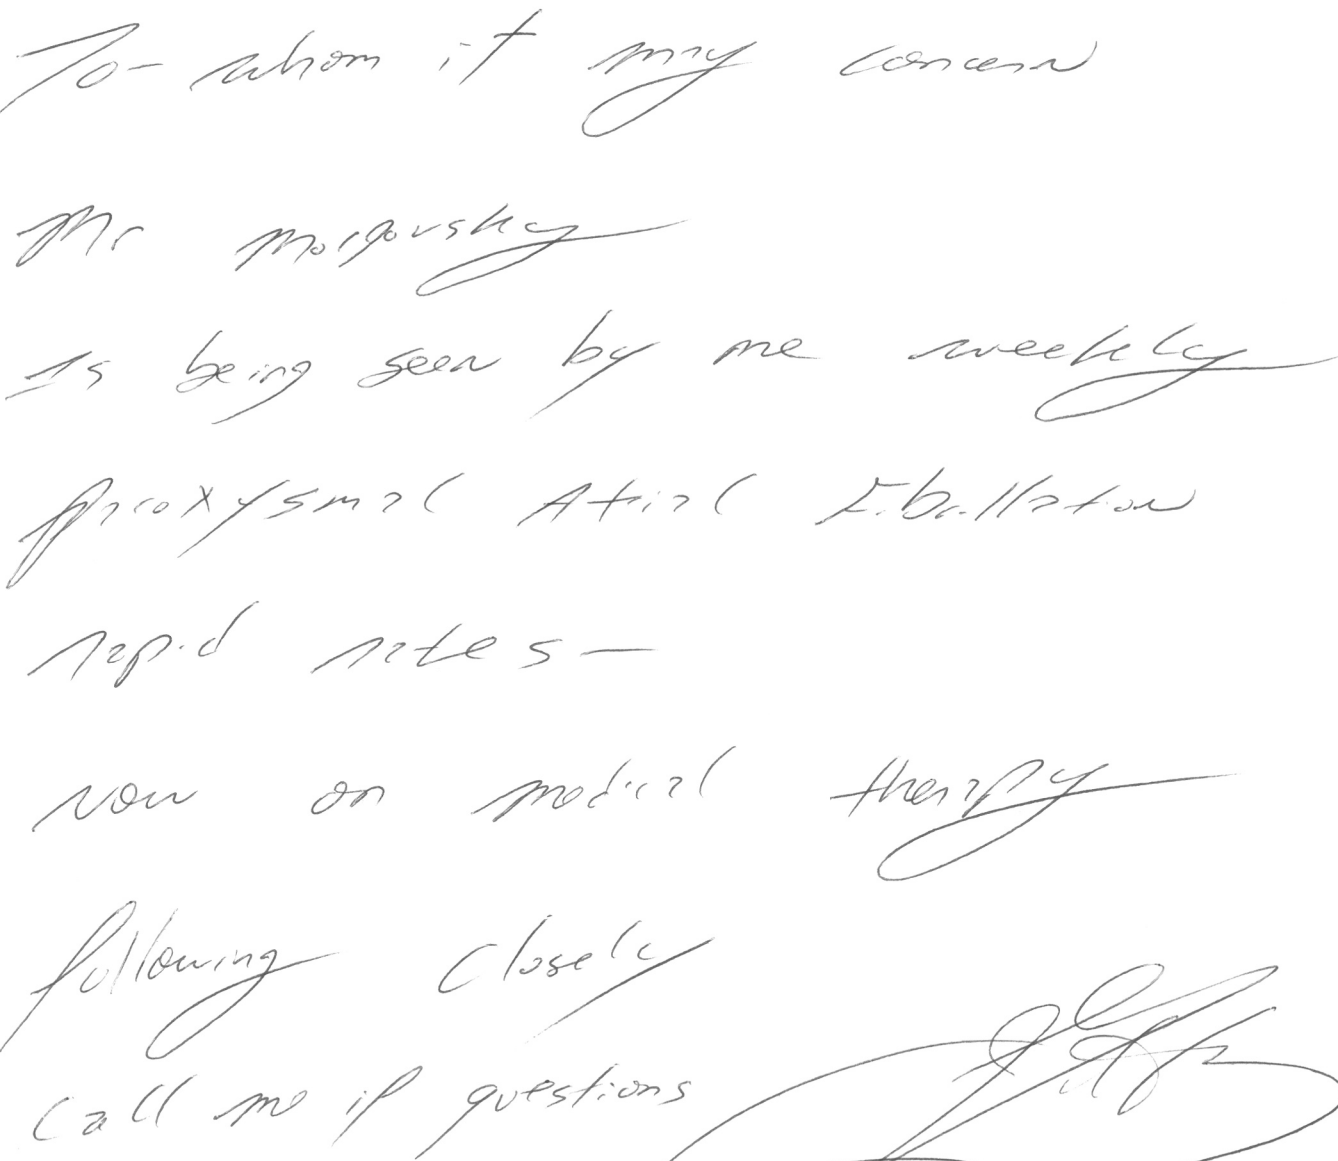 To whom it may concern
Mr Morgovsky
Is being seen by me weekly
Paroxysmal Atrial Fibrillation
rapid rates —
now on medical therapy
following closely
Call me if questions